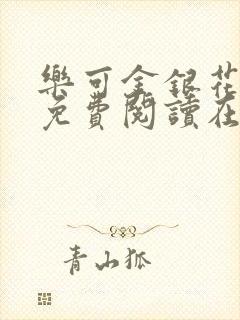 樂可金銀花
免費閱讀在
青山狐